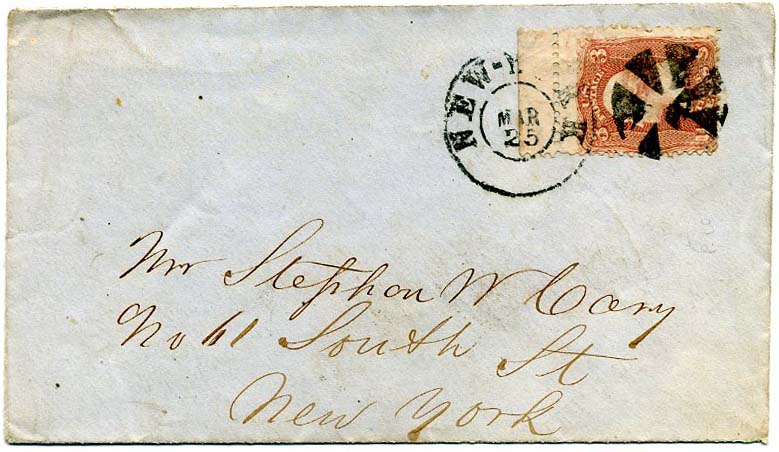 NEW-Y
MAR
25
3
U.S.
POSTAGE
Mr Stephen W Cary
No 61 South St
New York